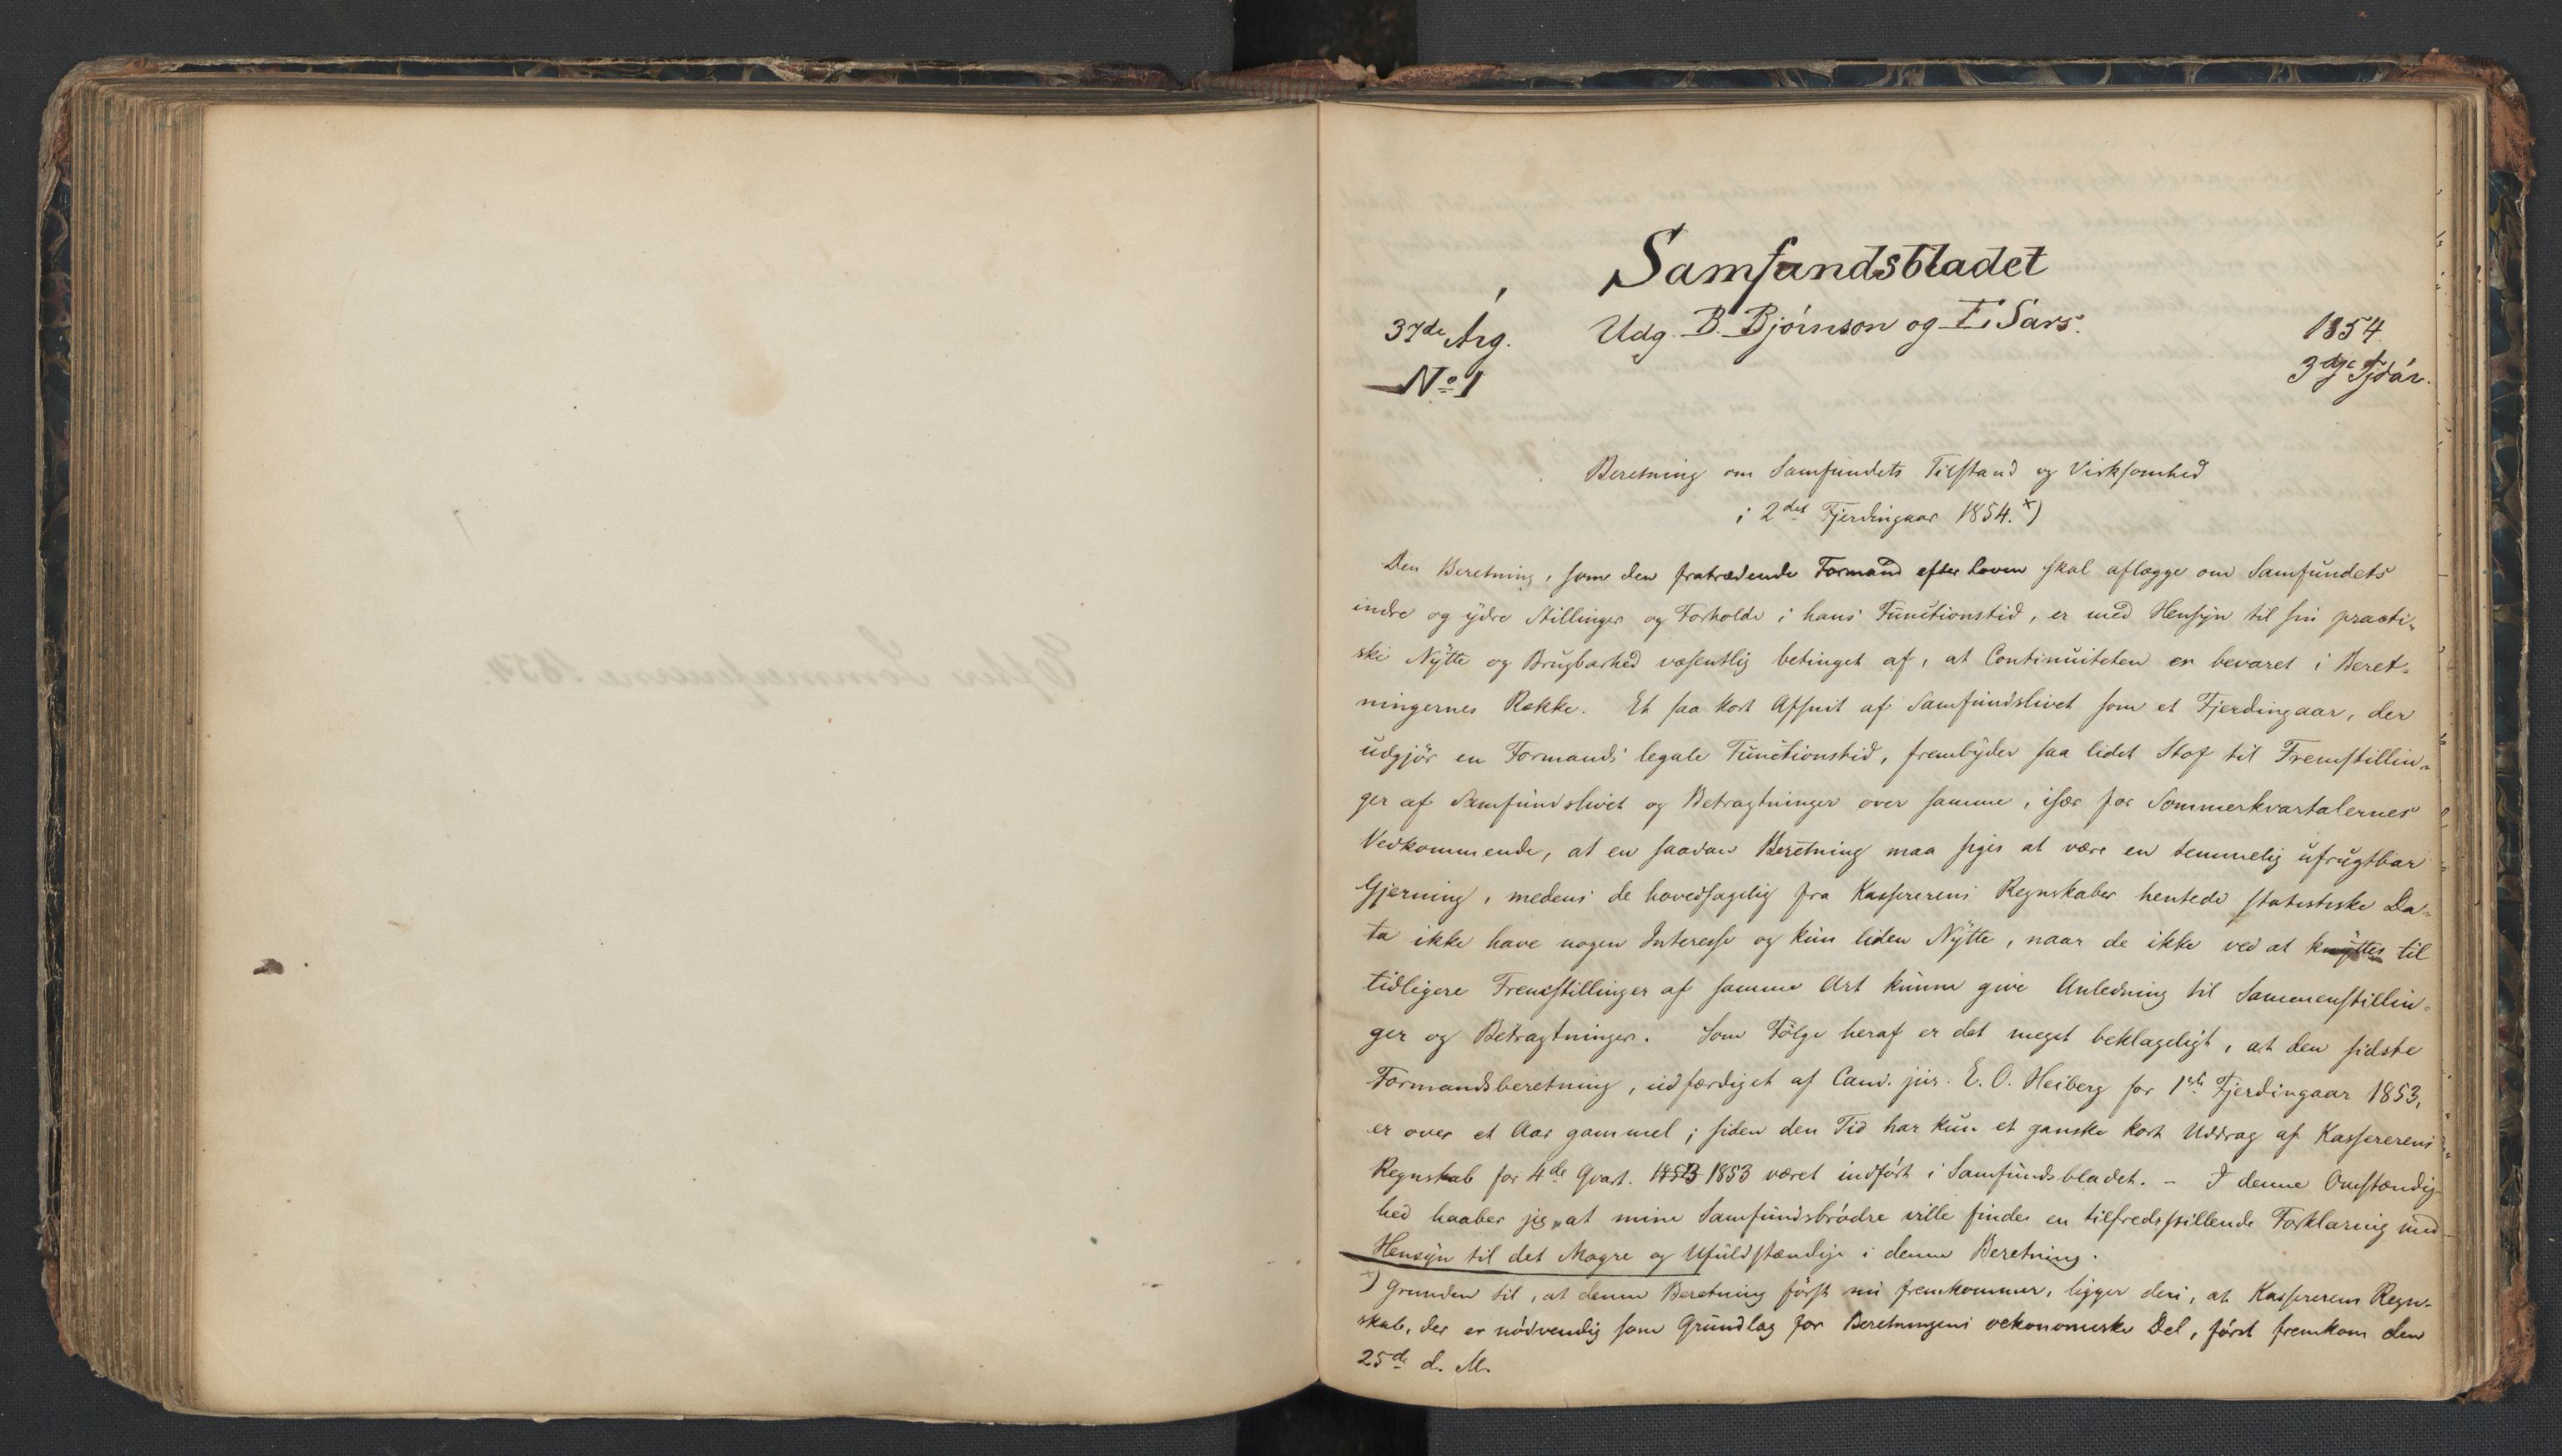 Samfundsbladet
37de Årg. Udg. B. Bjørnson og E. Sars. 1854.
No 1 3die Fjdår.
Beretning om Samfundets Tilstand og Virksomhed
i 2det Fjerdingaar 1854. x)
Den Beretning, som den fratrædende Formand efter Loven skal aflægge om Samfundets
indre og ydre Stillinger og Forholde i hans Functionstid, er med Hensyn til sin practi-
ske Nytte og Brugbarhed væsentlig betinget af, at Continuiteten er bevaret i Beret-
ningernes Række. Et saa kort Afsnit af Samfundslivet som et Fjerdingaar, der
udgjör en Formands legale Functionstid, frembyder saa lidet Stof til Fremstillin-
ger af Samfundslivet og Betragtninger over samme, især for Sommerkvartalernes
Vedkommende, at en saadan Beretning maa siges at være en temmelig ufrugtbar
Gjerning, medens de hovedsagelig fra Kassererens Regnskaber hentede statistiske Da-
ta ikke have nogen Interesse og kun liden Nytte, naar de ikke ved at knyttes til
tidligere Fremstillinger af samme Art kunne give Anledning til Sammenstillin-
ger og Betragtninger. Som Fölge heraf er det meget beklageligt, at den sidste
Formandsberetning, udfærdiget af Cand. jur. E. O. Heiberg for 1ste Fjerdingaar 1853,
er over et Aar gammel; siden den Tid har kun et ganske kort Uddrag af Kassererens
Regnskab for 4de Qvart. 1853 været indfört i Samfundsbladet. - I denne Omstændig-
hed haaber jeg, at mine Samfundsbrödre ville finde en tilfredsstillende Forklaring med
Hensyn til det Magre og Ufuldstændige i denne Beretning.
x) Grunden til, at denne Beretning först nu fremkommer, ligger deri, at Kassererens Regn-
skab, der er nödvendig som Grundlag for Beretningens oekonomiske Del, först fremkom den
25de d. M.